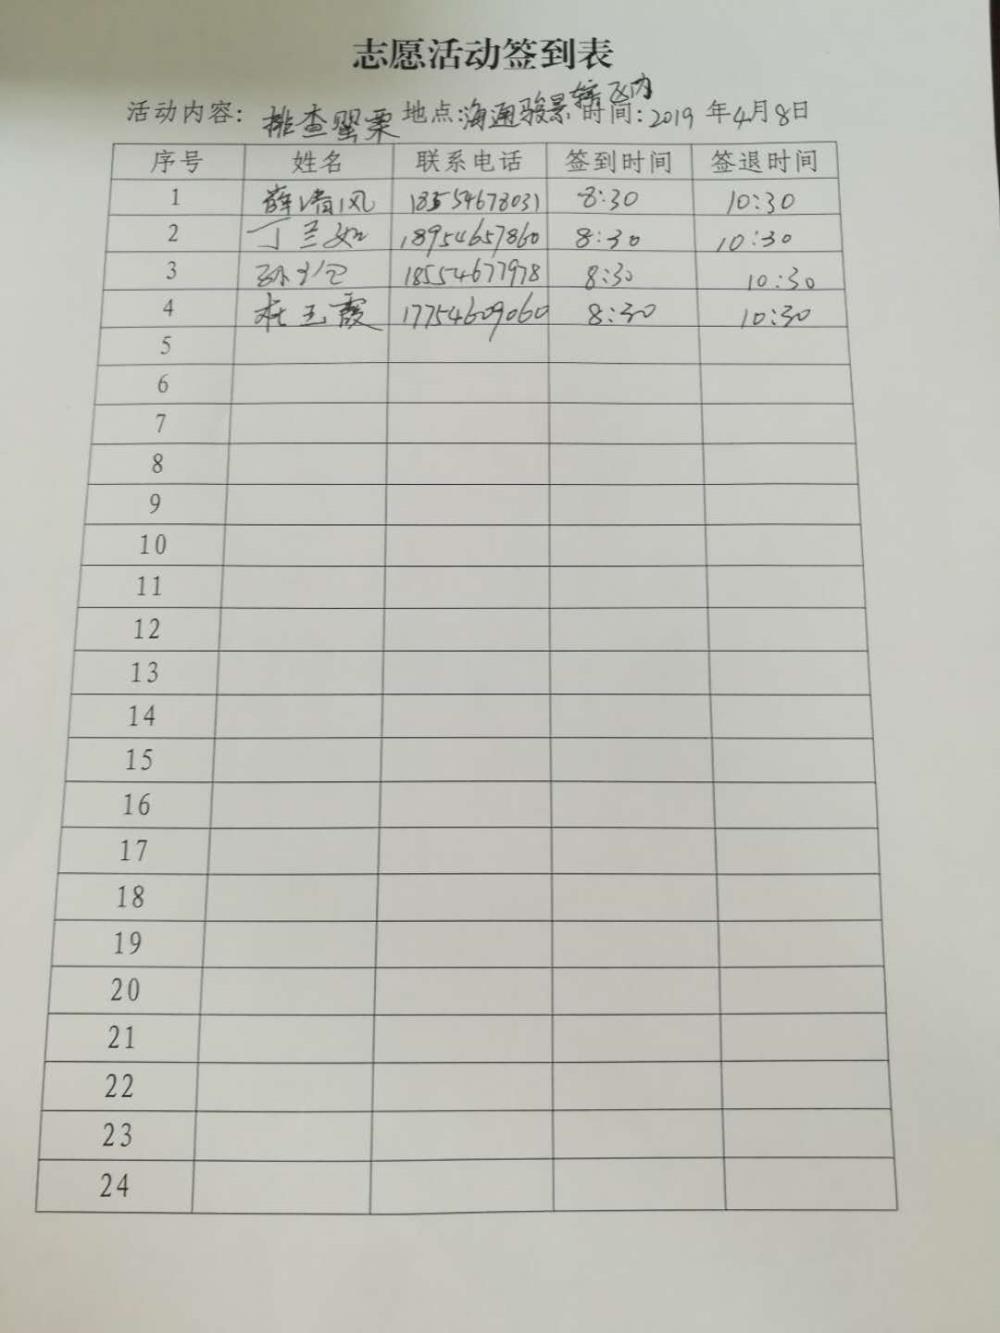 志愿活动签到表
活动内容: 排查罂粟 地点:海通骏景辖区内 时间:2019年4月8日
序号 姓名 联系电话 签到时间 签退时间
1 薛清风 18554678031 8:30 10:30
2 丁兰如 18954657860 8:30 10:30
3 18554677978 8:30 10:30
4 杜玉霞 17754609060 8:30 10:30
5
6
7
8
9
10
11
12
13
14
15
16
17
18
19
20
21
22
23
24